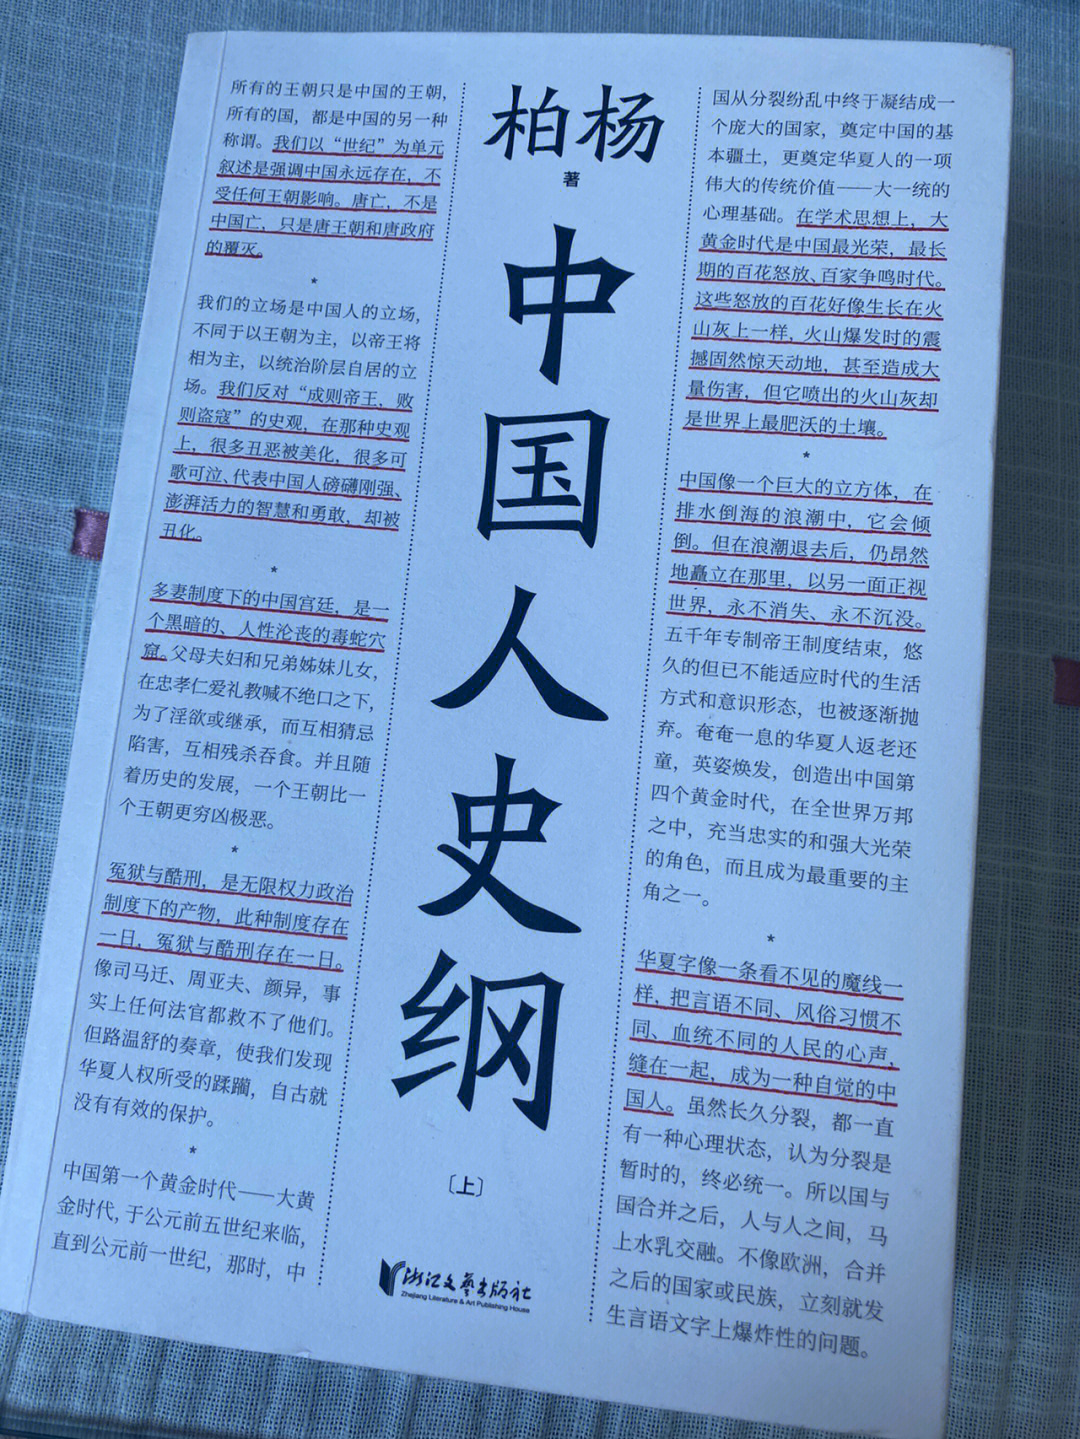 所有的王朝只是中国的王朝，
所有的国，都是中国的另一种
称谓。我们以“世纪”为单元
叙述是强调中国永远存在，不
受任何王朝影响。唐亡，不是
中国亡，只是唐王朝和唐政府
的覆灭。
*
我们的立场是中国人的立场，
不同于以王朝为主，以帝王将
相为主，以统治阶层自居的立
场。我们反对“成则帝王，败
则盗寇”的史观，在那种史观
上，很多丑恶被美化，很多可
歌可泣、代表中国人磅礴刚强、
澎湃活力的智慧和勇敢，却被
丑化。
*
多妻制度下的中国宫廷，是一
个黑暗的、人性沦丧的毒蛇穴
窟。父母夫妇和兄弟姊妹儿女，
在忠孝仁爱礼教喊不绝口之下，
为了淫欲或继承，而互相猜忌
陷害，互相残杀吞食。并且随
着历史的发展，一个王朝比一
个王朝更穷凶极恶。
*
冤狱与酷刑，是无限权力政治
制度下的产物，此种制度存在
一日，冤狱与酷刑存在一日。
像司马迁、周亚夫、颜异，事
实上任何法官都救不了他们。
但路温舒的奏章，使我们发现
华夏人权所受的蹂躏，自古就
没有有效的保护。
*
中国第一个黄金时代——大黄
金时代，于公元前五世纪来临，
直到公元前一世纪，那时，中
柏杨
著
中
国
人
史
纲
〔上〕
浙江文艺出版社
Zhejiang Literature & Art Publishing House
国从分裂纷乱中终于凝结成一
个庞大的国家，奠定中国的基
本疆土，更奠定华夏人的一项
伟大的传统价值——大一统的
心理基础。在学术思想上，大
黄金时代是中国最光荣，最长
期的百花怒放、百家争鸣时代。
这些怒放的百花好像生长在火
山灰上一样，火山爆发时的震
撼固然惊天动地，甚至造成大
量伤害，但它喷出的火山灰却
是世界上最肥沃的土壤。
*
中国像一个巨大的立方体，在
排水倒海的浪潮中，它会倾
倒。但在浪潮退去后，仍昂然
地矗立在那里，以另一面正视
世界，永不消失、永不沉没。
五千年专制帝王制度结束，悠
久的但已不能适应时代的生活
方式和意识形态，也被逐渐抛
弃。奄奄一息的华夏人返老还
童，英姿焕发，创造出中国第
四个黄金时代，在全世界万邦
之中，充当忠实的和强大光荣
的角色，而且成为最重要的主
角之一。
*
华夏字像一条看不见的魔线一
样，把言语不同、风俗习惯不
同、血统不同的人民的心声，
缝在一起，成为一种自觉的中
国人。虽然长久分裂，都一直
有一种心理状态，认为分裂是
暂时的，终必统一。所以国与
国合并之后，人与人之间，马
上水乳交融。不像欧洲，合并
之后的国家或民族，立刻就发
生言语文字上爆炸性的问题。